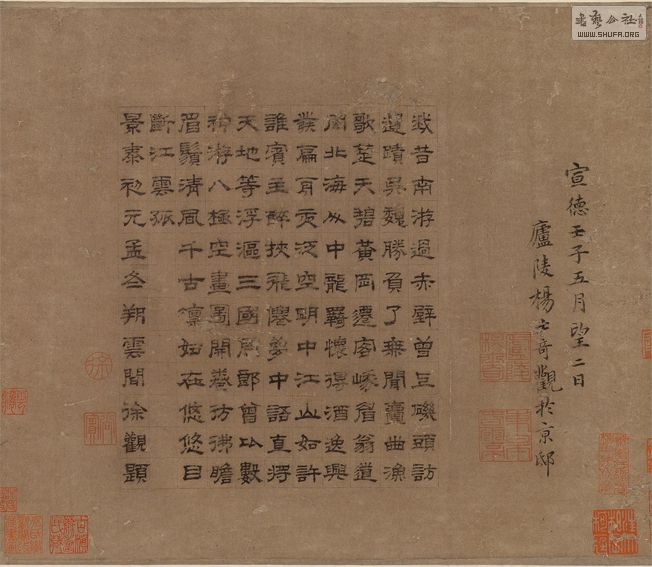 書藝公社
WWW.SHUFA.ORG
宣德壬子五月望二日
廬陵楊士奇觀於京邸
我昔南游過赤壁曾立磯頭訪
遺蹟吳魏勝負了無聞曲漁
歌楚天碧黃岡遷客峨眉翁道
北海从中龍羈懷得酒逸興
發扁舟夜泛空明中江山如許
誰賓主醉挾飛僊夢中語直將
天地等浮漚三國周郎曾數
神游八極空畫圖開卷彷彿瞻
眉鬚清風千古凜如在悠悠目
斷江雲孤
景泰初元孟冬朔雲間徐觀題